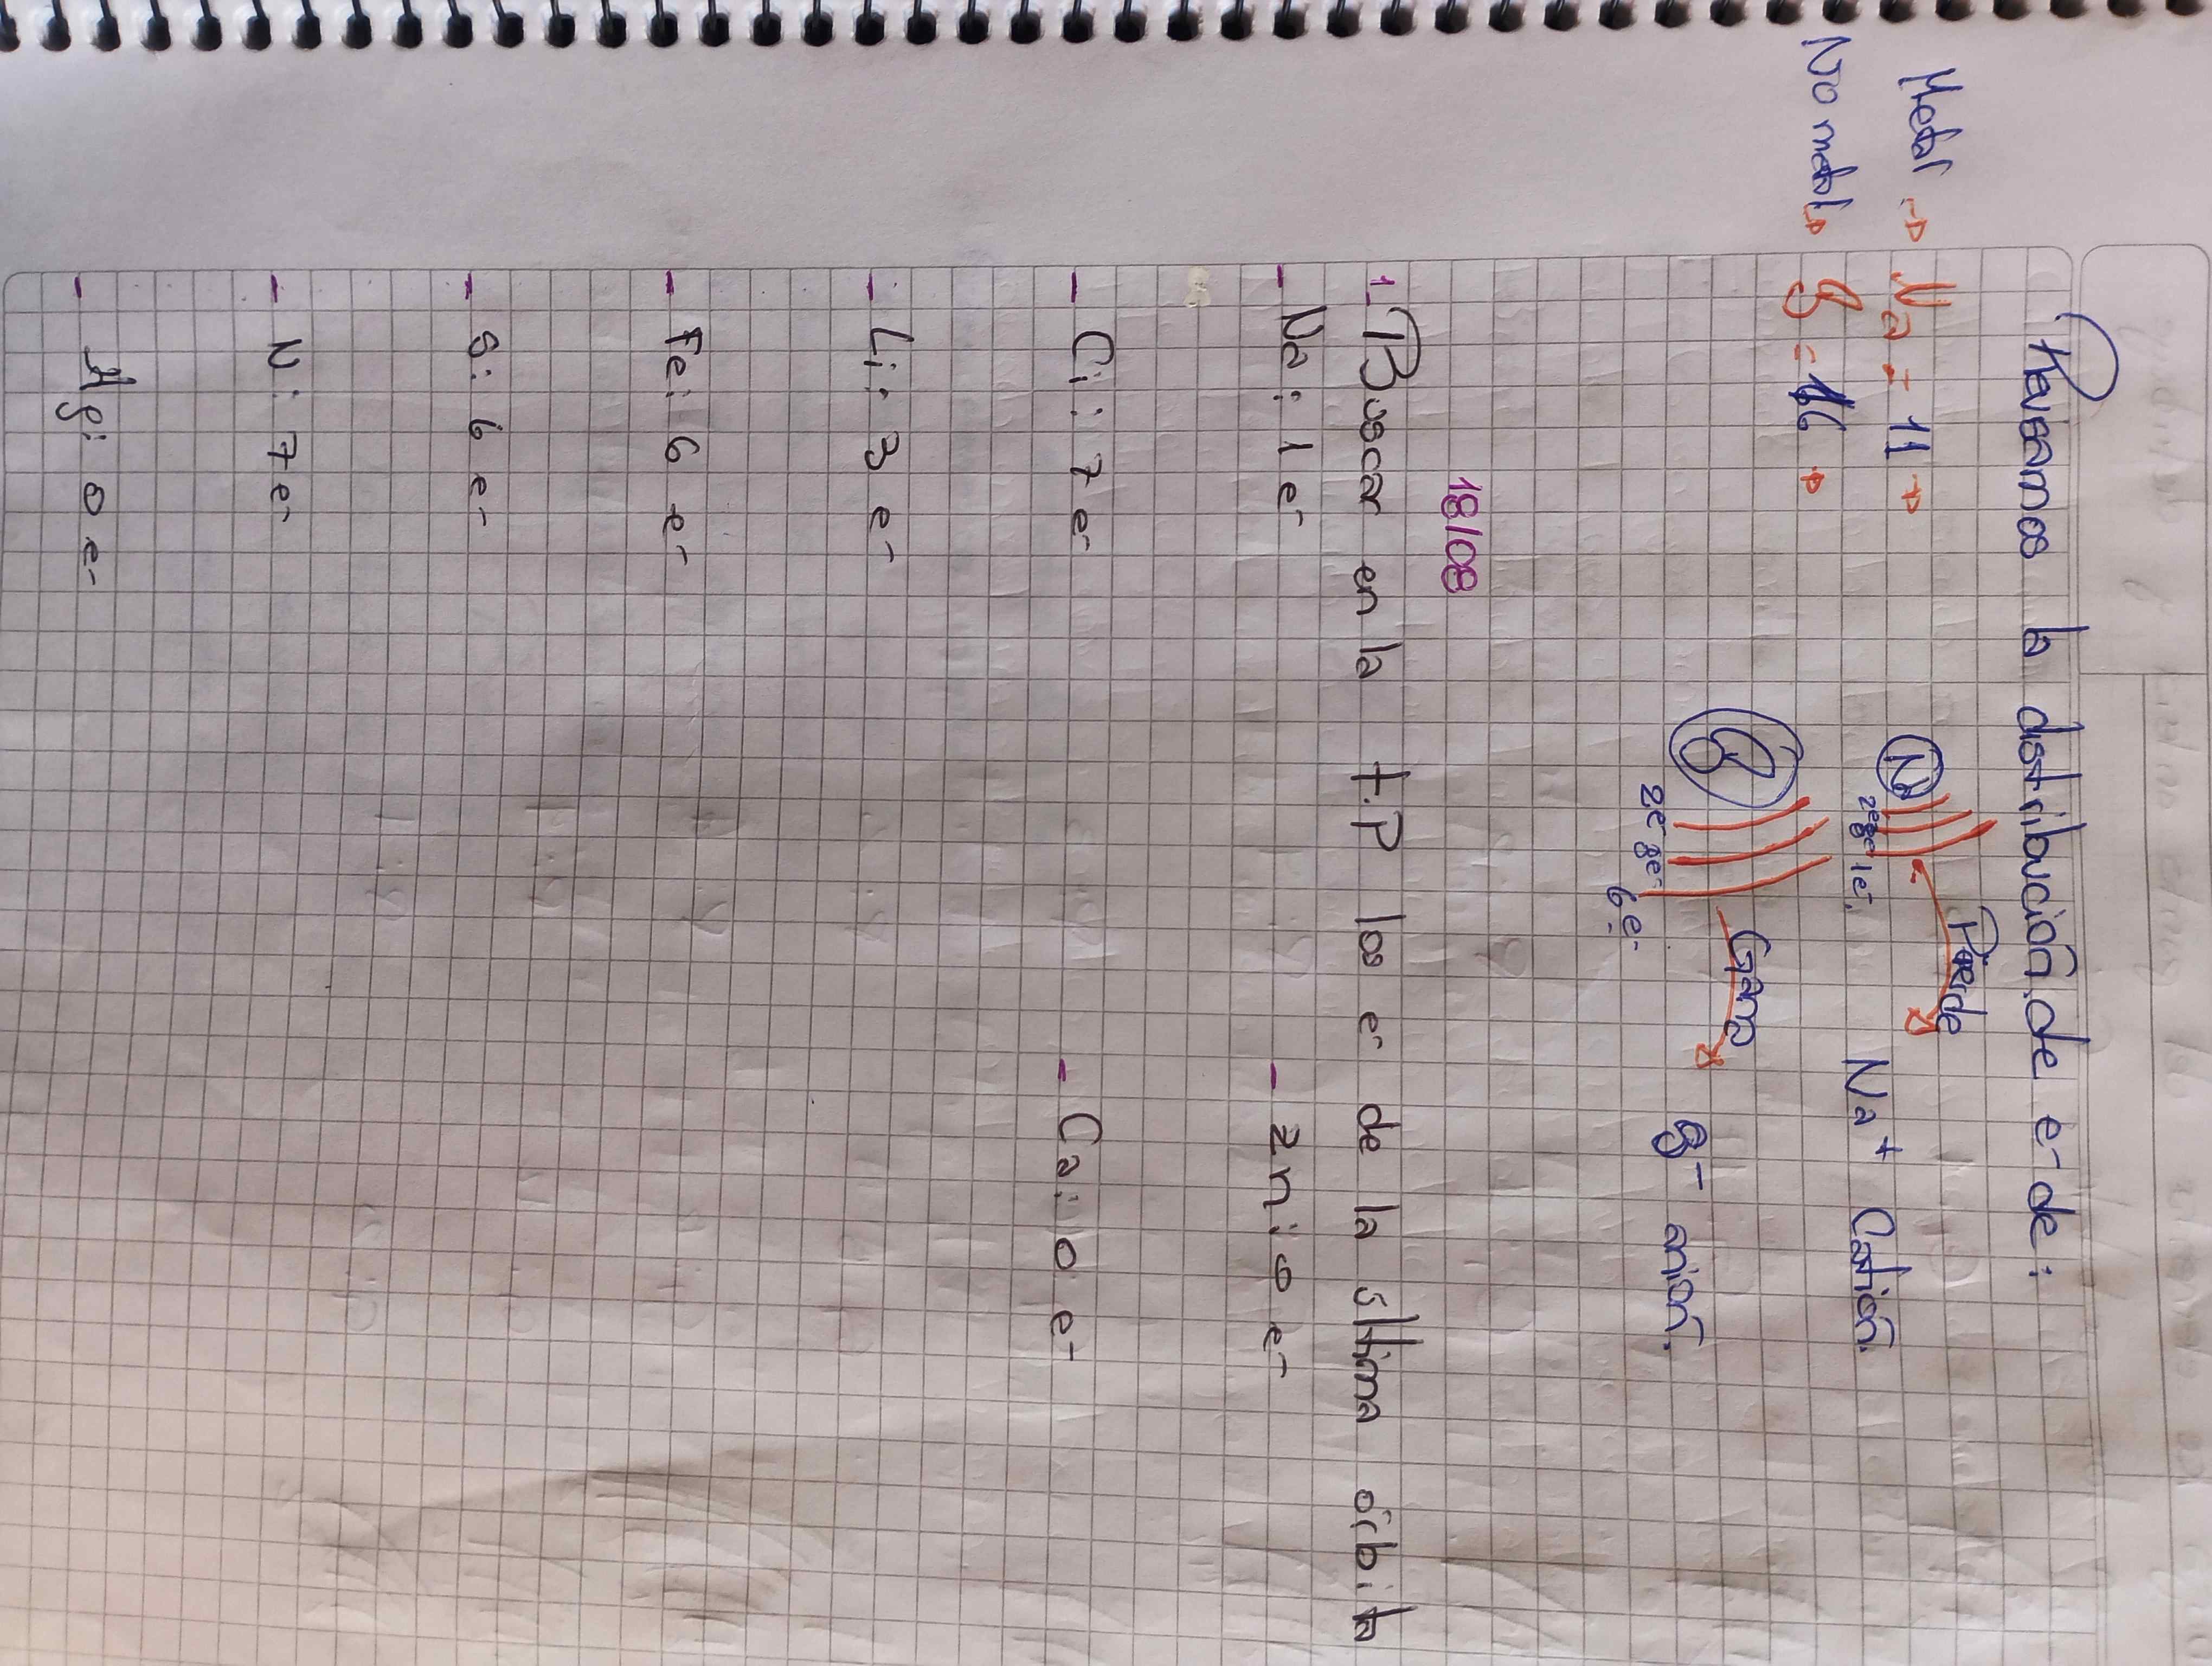 Revisamos la distribución de e- de:
Metal → Na = 11 → Na 2e- 8e- 1e- Pierde Na+ Catión
No metal → S = 16 → S 2e- 8e- 6e- Gana S- anión.
18/08
1_ Buscar en la t.P los e- de la última órbita
- Na: 1e- - Zn: 0 e-
- Ci: 7e- - Ca: 0 e-
- Li: 3 e-
- Fe: 6 e-
- S: 6 e-
- N: 7e-
- Ag: 0 e-